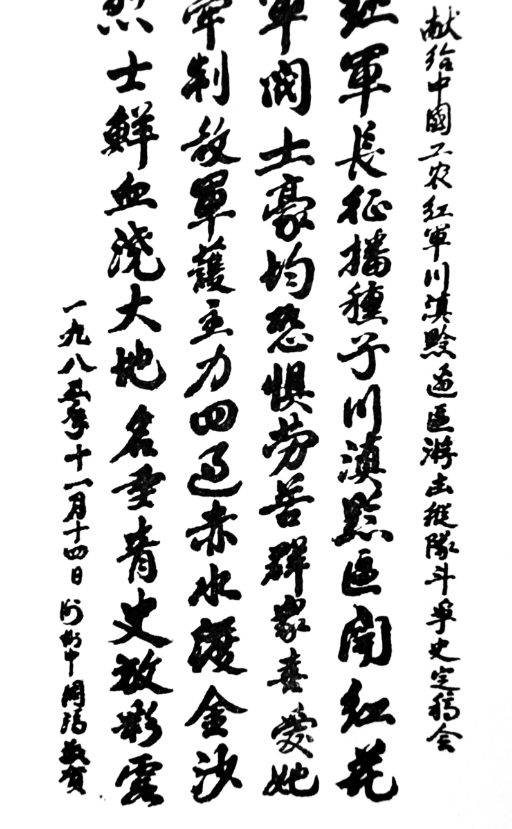 献给中國工农红軍川滇黔边區游击纵隊斗爭史定稿会
红軍長征播種子川滇黔區開红花
軍閥土豪均恐惧劳苦群众喜爱她
牵制敌軍護主力四過赤水渡金沙
烈士鮮血浇大地名垂青史放彩霞
一九八五年十一月十四日